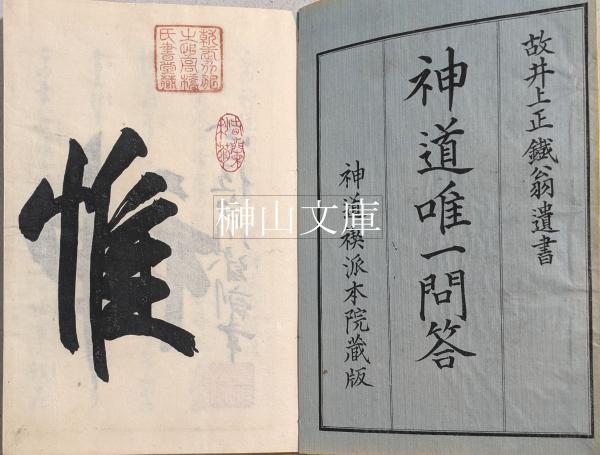 故井上正鐵翁遺書
神道唯一問答
神道禊派本院藏版
惟
榊山文庫